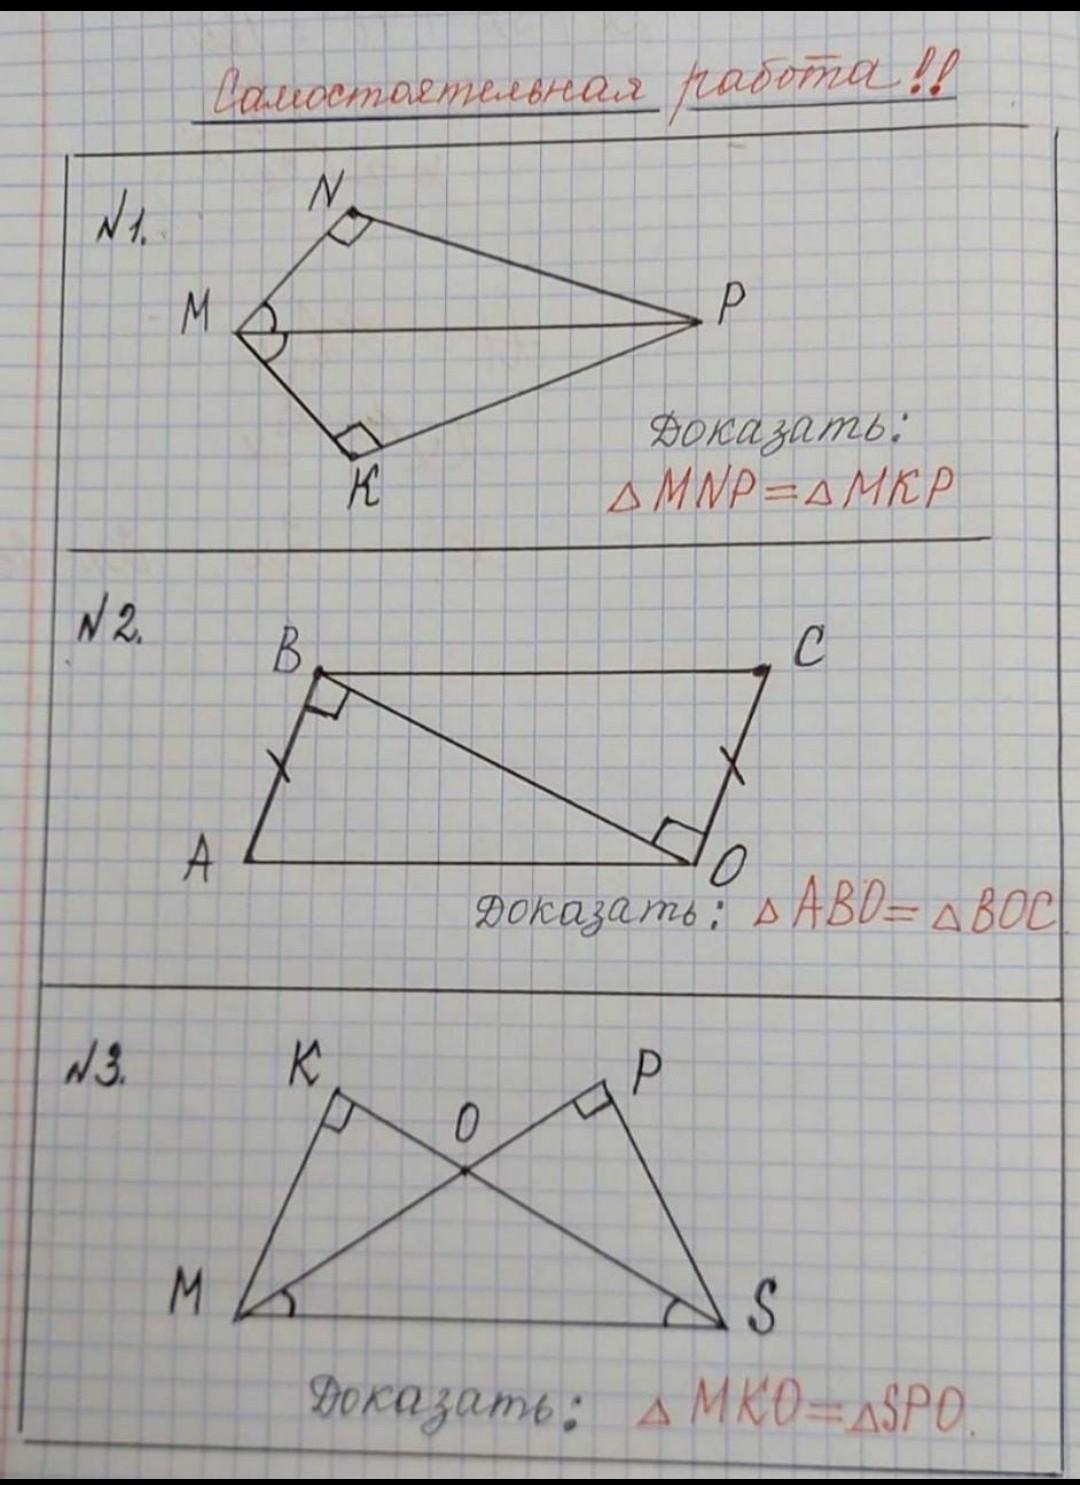 Самостоятельная работа!!
N1.
N
M
P
K
Доказать:
△MNP=△MKP
N2.
B
C
A
O
Доказать: △ABO=△BOC
N3.
K
P
O
M
S
Доказать: △MKO=△SPO.